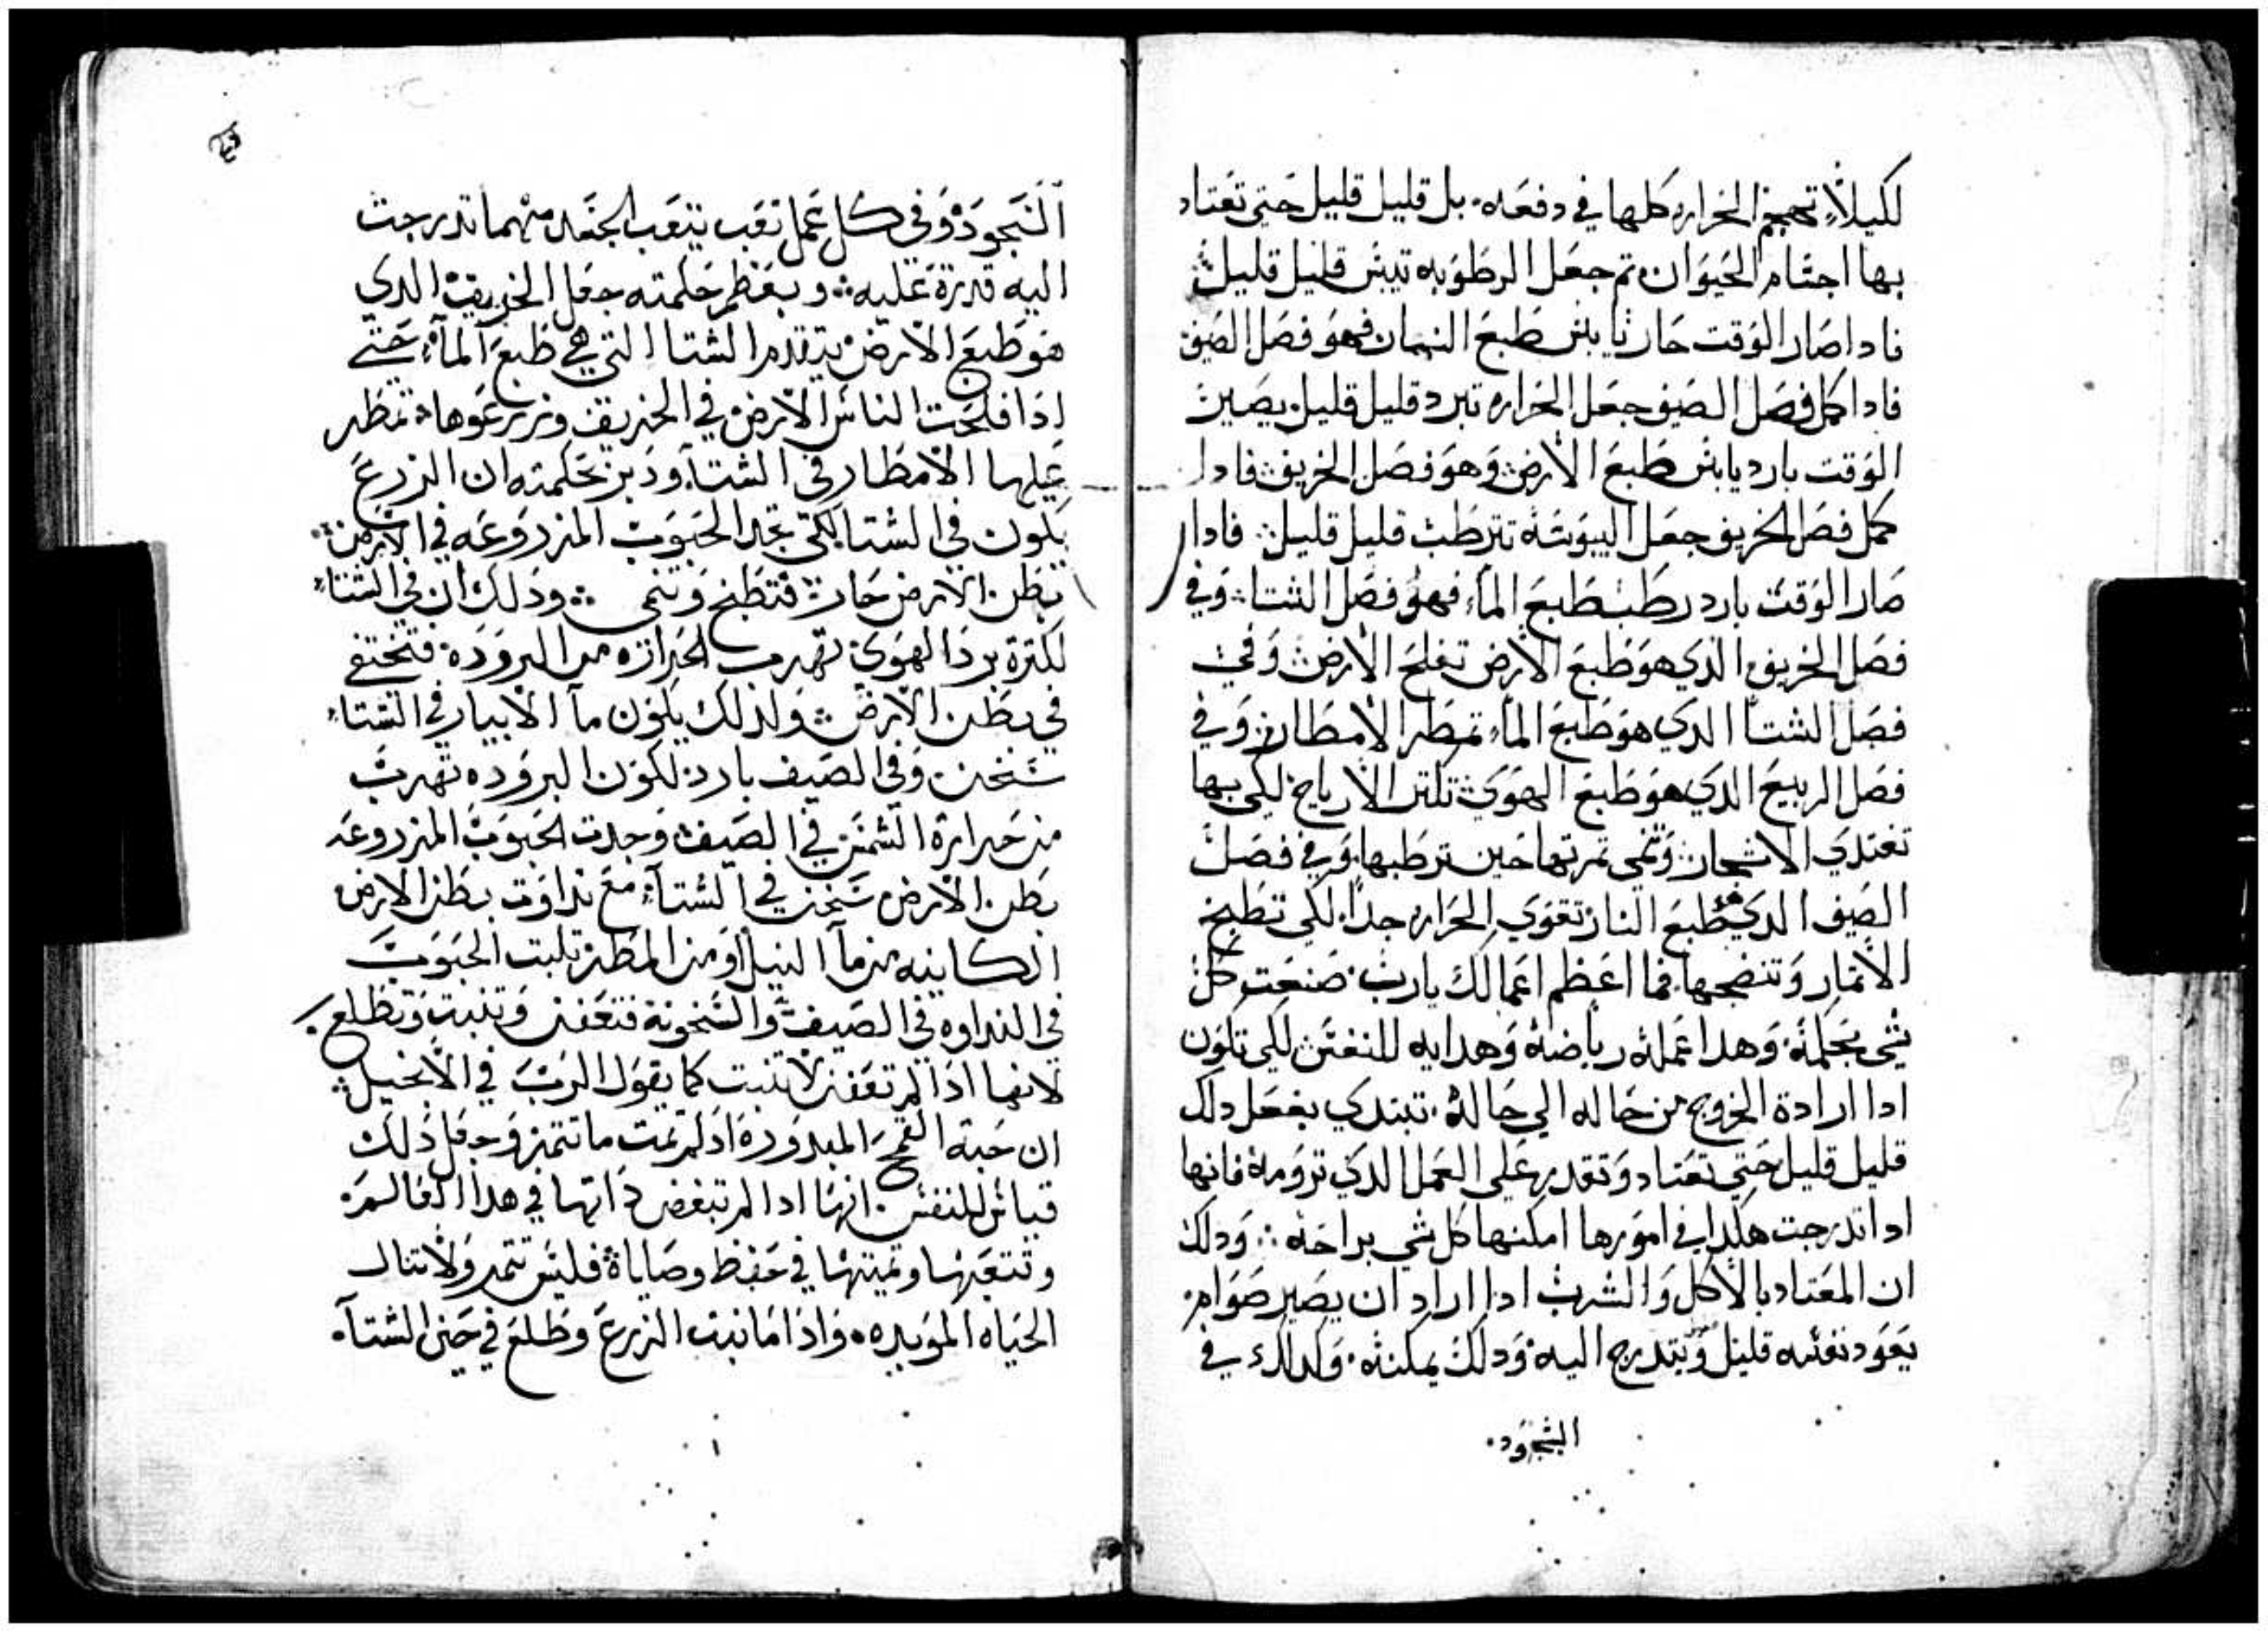 لكيلاً تهجم الحراره كلها في دفعه. بل قليل قليل حتى تعتاد
بها اجسام الحيوان تم جعل الرطوبه تيبس قليل قليل
فادا صار الوقت حار يابس طبع النيران فهو فصل الصيف
فادا كمل فصل الصيف جعل الحراره تبرد قليل قليل يصير
الوقت بارد يابس طبع الأرض وهو فصل الخريف فادا
كمل فصل الخريف جعل اليبوسه تترطب قليل قليل فادا
صار الوقت بارد رطب طبع الماء فهو فصل الشتا وفي
فصل الخريف الدي هو طبع الأرض تفلح الأرض وفي
فصل الشتا الدي هو طبع الماء تمطر الأمطار وفي
فصل الربيع الدي هو طبع الهوى تكتر الأرياح لكي بها
تغتدي الاشجار وتنمي تمرتها حين ترطبها وفي فصل
الصيف الدي هو طبع النار تقوي الحراره جداً لكي تطبخ
الأتمار وتنضجها فما اعظم اعمالك يارب صنعت كل
شي بحكمة وهدا عمله رياضة وهدايه للنفس لكي تكون
ادا ارادة الخروج من حاله الي حالة تبتدي بفعل دلك
قليل قليل حتي تعتاد وتقدر علي العمل الدي ترومه فانها
ادا تدرجت هكدا في امورها امكنها كل شي براحه ودلك
ان المعتاد بالأكل والشرب ادا اراد ان يصير صوام
يعود نفسه قليل ويتدرج اليه ودلك يمكنه وكدلك في
السجود
السجود وفي كل عمل تعب يتعب الجسد مهما تدرجت
اليه قدرة عليه وبعظم حكمته جعل الخريف الدي
هو طبع الأرض يتقدم الشتا التي هي طبع الماء حتي
ادا فلحت الناس الأرض في الخريف وزرعوها تمطر
عليها الأمطار في الشتاء ودبر بحكمته ان الزرع
يكون في الشتا لكي تجد الحبوب المزروعه في الأرض
بطن الأرض حار فتطبخ وتنمي ودلك ان في الشتاء
لكترة برد الهوى تهرب الحرارة من البرودة فتختفي
في بطن الأرض ولدلك يكون ماء الأبيار في الشتاء
سخن وفي الصيف بارد لكون البروده تهرب
من حرارة الشمس في الصيف وجدت الحبوب المزروعه
بطن الأرض سخن في الشتاء مع نداوت بطن الارض
الكاينه من ماء النيل أو من المطر تلبت الحبوب
في النداوه في الصيف والسخونة فتعفن وتنبت وتطلع
لانها ادا لم تعفن لا تنبت كما يقول الرب في الأنجيل
ان حبة القمح المبدورة اد لم تمت ما تتمر وجعل دلك
قياس للنفس انها ادا لم تبغض داتها في هدا العالم
وتتعبها وتميتها في حفظ وصاياة فليس تتمر ولا تنال
الحياه الموبده واذا ما نبت الزرع وطلع في حين الشتاء